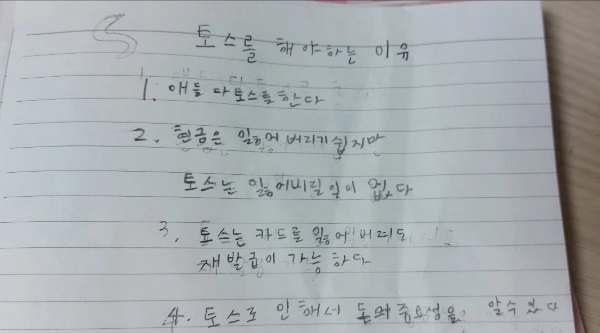 토스를 해야하는 이유
1. 애들 다 토스를 한다
2. 현금은 잃어버리기 쉽지만
토스는 잃어버릴 일이 없다
3. 토스는 카드를 잃어버려도
재발급이 가능하다
4. 토스로 인해서 돈의중요성을 알수있다